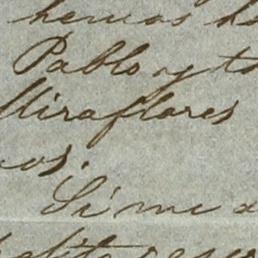 hemos ha
Pablo y t
Miraflores
nos.
Si me a